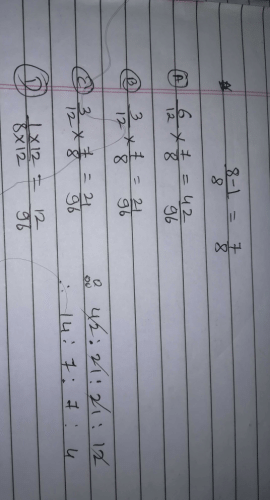 * 8-1/8 = 7/8
(A) 6/12 × 7/8 = 42/96
(B) 3/12 × 7/8 = 21/96
(C) 3/12 × 7/8 = 21/96
(D) 1×12/8×12 = 12/96
∴ 42 : 21 : 21 : 12
∴ 14 : 7 : 7 : 4